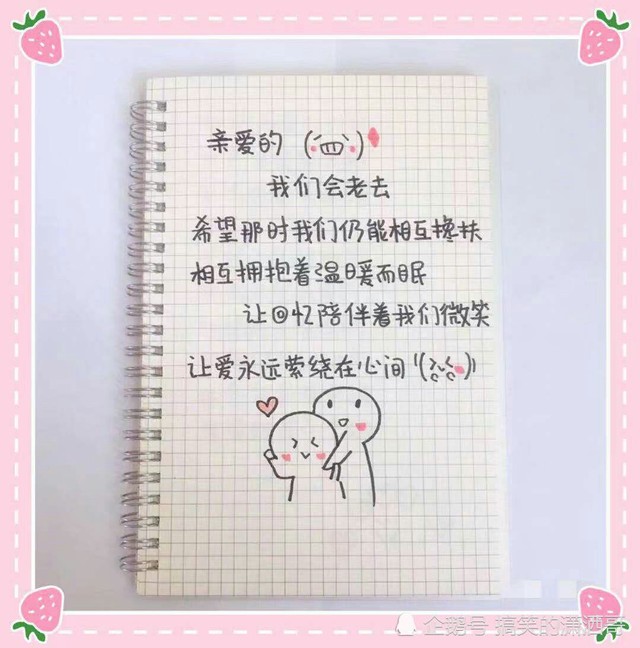 亲爱的
我们会老去
希望那时我们仍能相互搀扶
相互拥抱着温暖而眠
让回忆陪伴着我们微笑
让爱永远萦绕在心间
企鹅号 搞笑的潇洒哥